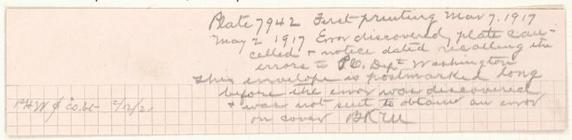 Plate 7942 First printing Mar 7. 1917
May 2 1917 Error discovered plate can-
celled & notice dated recalling the
errors to P.O. Dept Washington
This envelope is postmarked long
before the error was discovered
& was not sent to obtain an error
on cover